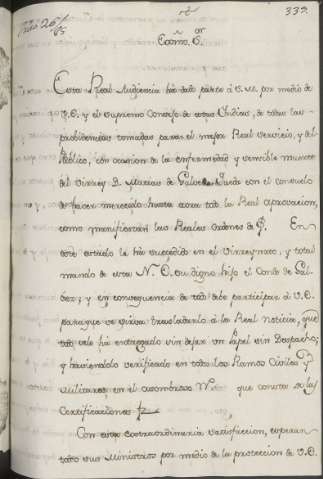 339.
Exmo. Sor.
Esta Real Audiencia ha dado parte á S. M. por medio de
V. E. y el Supremo Consejo de estas Indias, de todas las
probidencias tomadas para el mejor Real servicio, y del
Público, con ocasion de la enfermedad y sensible muerte
del Virrey D. Matias de Galvez. Queda con el consuelo
de haver merecido hasta aora toda la Real aprovacion,
como manifiestan las Reales ordenes de En
este estado le ha sucedido en el Virreynato, y total
mando de esta N. E. su digno hijo el Conde de Gal-
vez; y en consequencia de todo debe participar á V. E.
para que se sirva trasladarlo á la Real noticia, que
todo se le ha entregado sin dejar un Papel sin Despacho;
y haviendolo verificado en todos los Ramos Civiles y
militares, en el asombroso N.º que consta de las
Certificaciones
Con esta extraordinaria satisfaccion, esperan
todos sus Ministros por medio de la proteccion de V. E.